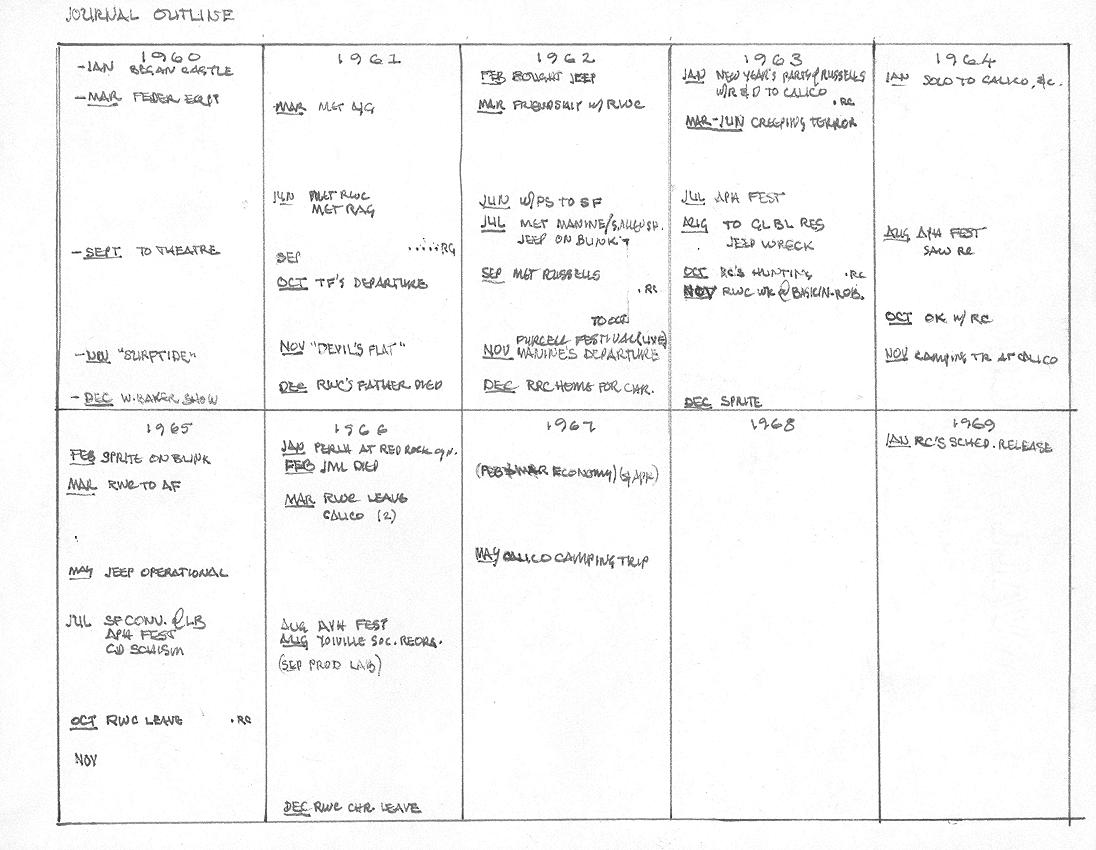 JOURNAL OUTLINE
1960
-JAN BEGAN CASTLE
-MAR FEDER EQPT
-SEPT. TO THEATRE
-NOV "SURFTIDE"
-DEC W. BAKER SHOW
1961
MAR MET AJG
JUN MET RWC
MET RAG
SEP ......RG
OCT TF'S DEPARTURE
NOV "DEVIL'S FLAT"
DEC RWC'S FATHER DIED
1962
FEB BOUGHT JEEP
MAR FRIENDSHIP W/ RWC
JUN W/PS TO SF
JUL MET MANINE/
JEEP ON BLINK
SEP MET RUSSELLS
.RC
TO
PURCELL FESTIVAL (LIVE)
NOV MANINE'S DEPARTURE
DEC RRC HOME FOR CHR.
1963
JAN NEW YEAR'S PARTY @ RUSSELLS
W/R & D TO CALICO
.RC
MAR-JUN CREEPING TERROR
JUL APH FEST
AUG TO GL BL RES
JEEP WRECK
OCT RC'S HUNTING .RC
NOV RWC WK @ BASKIN-ROB.
DEC SPRITE
1964
JAN SOLO TO CALICO, &C.
AUG APH FEST
SAW RC
OCT OK W/ RC
NOV CAMPING TR AT CALICO
1965
FEB SPRITE ON BLINK
MAR RWC TO AF
MAY JEEP OPERATIONAL
JUL SF CONV. @ LB
APH FEST
CD SCHISM
OCT RWC LEAVE .RC
NOV
1966
JAN PERLH AT RED ROCK CYN.
FEB JML DIED
MAR RWC LEAVE
CALICO (2)
AUG APH FEST
AUG YOIVILLE SOC. REORG.
(SEP PROD LAB)
DEC RWC CHR. LEAVE
1967
(FEB & MAR ECONOMY) (& APR)
MAY CALICO CAMPING TRIP
1968
1969
JAN RC'S SCHED. RELEASE